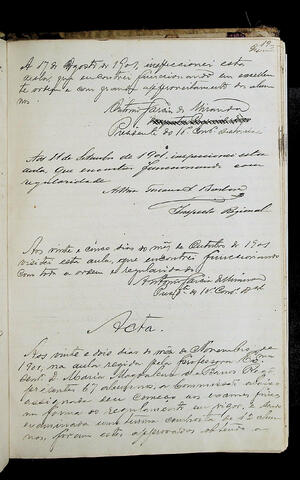 A 17 de Agosto de 1901, inspeccionei esta
aula, que encontrei funccionando em excellen
te ordem e com grande aproveitamento dos alum
nos.
Antonio de Miranda
Presidente do 1º Cons.
Aos 11 de Setembro de 1901 inspeccionei esta
aula que encontrei funccionando com
regularidade
Arthur
Inspector Regional
Aos vinte e cinco dias do mês de Outubro de 1901
visitei esta aula, que encontrei funccionando
com toda a ordem e regularidade
Antonio de Miranda
Presidte do 1º Cons.
Acta.
Aos vinte e dois dias do mês de Novembro de
1901, na aula regida pela professora
D. Maria Magdalena
presentes 67 alumnos, a Commissão abaixo
assignada deu começo aos exames finaes
na forma do regulamento em vigor, e sendo
examinada uma turma composta de 12 alum
nos, foram estes approvados obtendo a